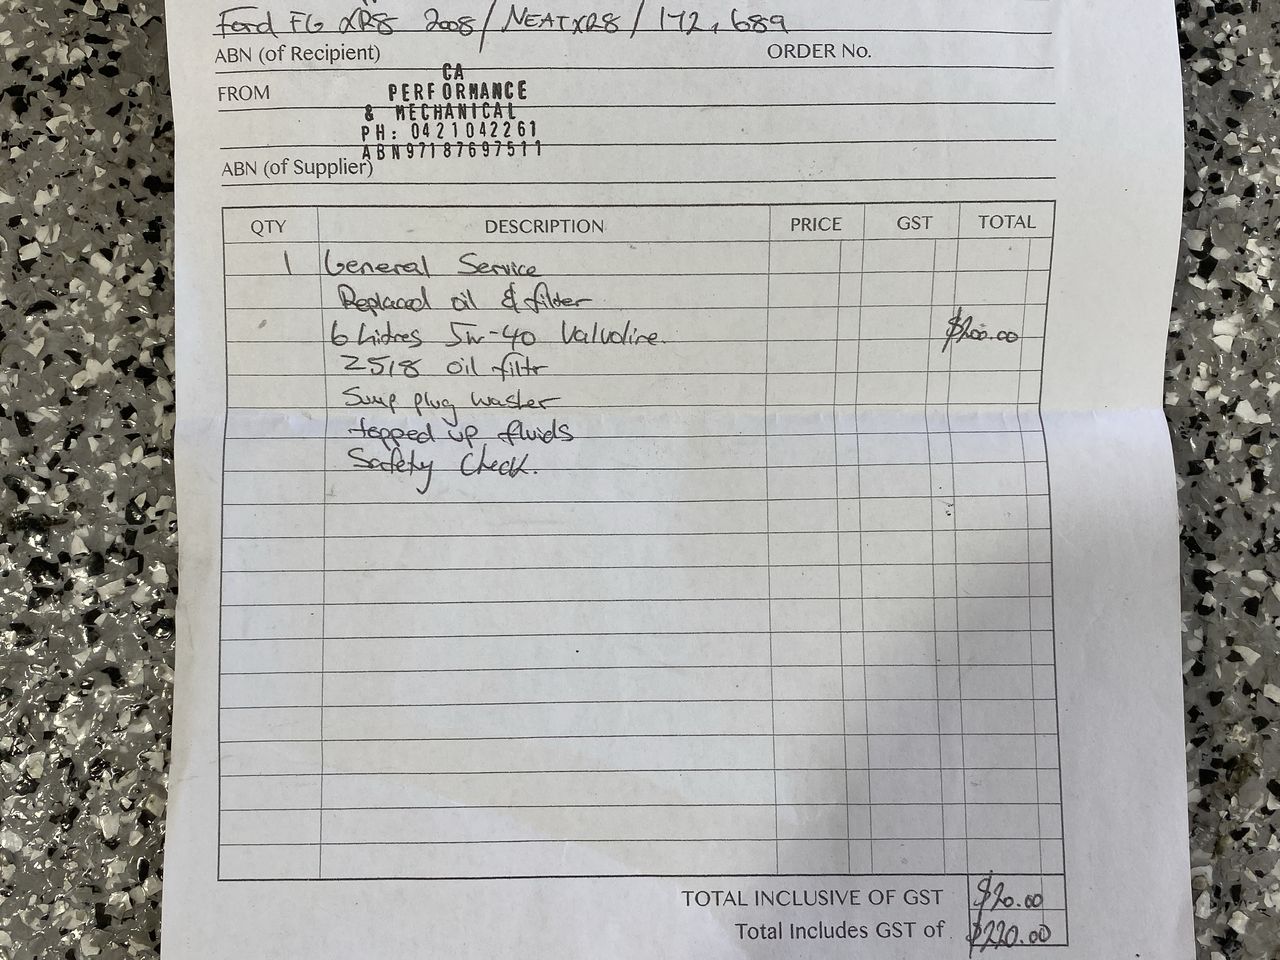 Ford FG XR8 2008 / NEATXR8 / 172,689
ABN (of Recipient) ORDER No.
CA
FROM PERFORMANCE
& MECHANICAL
PH: 0421042261
ABN97187697511
ABN (of Supplier)
QTY DESCRIPTION PRICE GST TOTAL
1 General Service
Replaced oil & filter
6 Litres 5w-40 Valvoline. $200.00
2518 oil filtr
Sump plug washer
topped up fluids
Safety Check.
TOTAL INCLUSIVE OF GST $20.00
Total Includes GST of $220.00